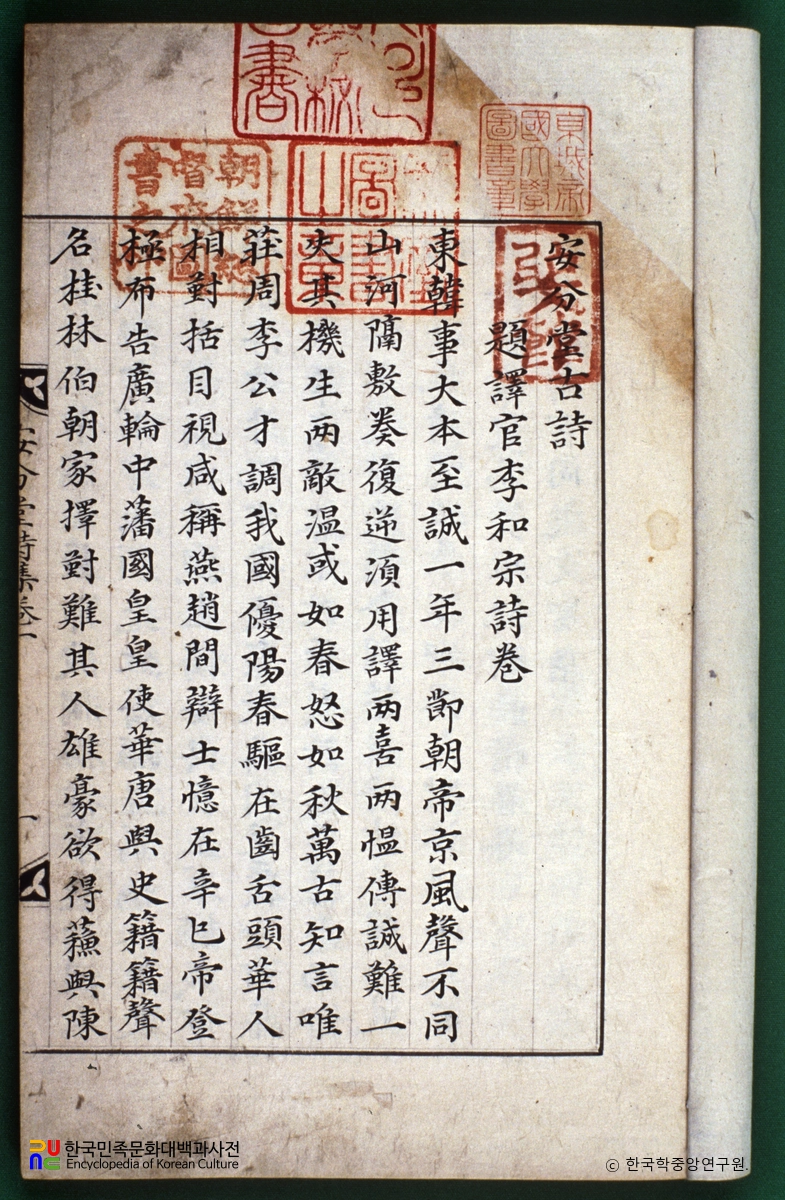 安分堂古詩
題譯官李和宗詩卷
東韓事大本至誠一年三節朝帝京風聲不同
山河隔敷奏復逆須用譯兩喜兩慍傳誠難一
失其機生兩敵溫或如春怒如秋萬古知言唯
莊周李公才調我國優陽春驅在齒舌頭華人
相對括目視咸稱燕趙間辯士憶在辛巳帝登
極布告廣輪中藩國皇皇使華唐與史籍籍聲
名桂林伯朝家擇對難其人雄豪欲得蘓與陳
安分堂詩集卷一
一
東城帝
國大學
圖書章
朝鮮總
督府圖
書之印
한국민족문화대백과사전
Encyclopedia of Korean Culture
© 한국학중앙연구원.